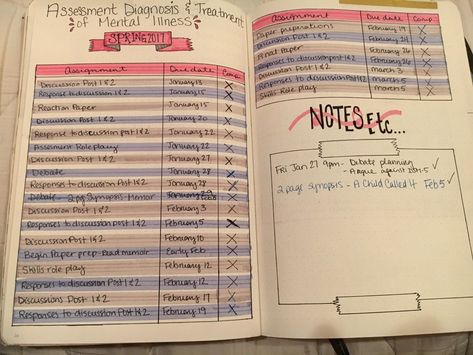 Assessment Diagnosis & Treatment
of Mental Illness
SPRING 2017
Assignment Due date Comp.
Discussion Post 1 & 2 January 13 X
Response to discussion 1 & 2 January 15 X
Reaction Paper January 15 X
Discussion Post 1 & 2 January 20 X
Response to discussion 1 & 2 January 22 X
Assessment Role play January 22 X
Discussion Post 1 & 2 January 27 X
Debate January 28 X
Responses to discussion Post 1 & 2 January 28 X
Debate - 2 pg Synopsis - Memoir January 29 X
Discussion Post 1 & 2 February 3 X
Responses to discussion Post 1 & 2 February 5 X
Discussion Post 1 & 2 February 10 X
Begin Paper prep - Read memoir Early Feb X
Skills role play February 12 X
Responses to discussion Post 1 & 2 February 12 X
Discussions Post 1 & 2 February 17 X
Responses to discussion Post 1 & 2 February 19 X
Assignment Due date Comp.
Paper preparations February 19
Discussion Post 1 & 2 February 24 X
Final Paper February 26 X
Responses to discussion Post 1 & 2 February 26 X
Discussion Post 1 & 2 March 3 X
Responses to discussion Post 1 & 2 March 5 X
Skills Role play March 5 X
NOTES, Etc...
Fri Jan 27 9pm - Debate planning
- Argue against DSM-5 ✓
2 page Synopsis - A Child Called It Feb 5 ✓